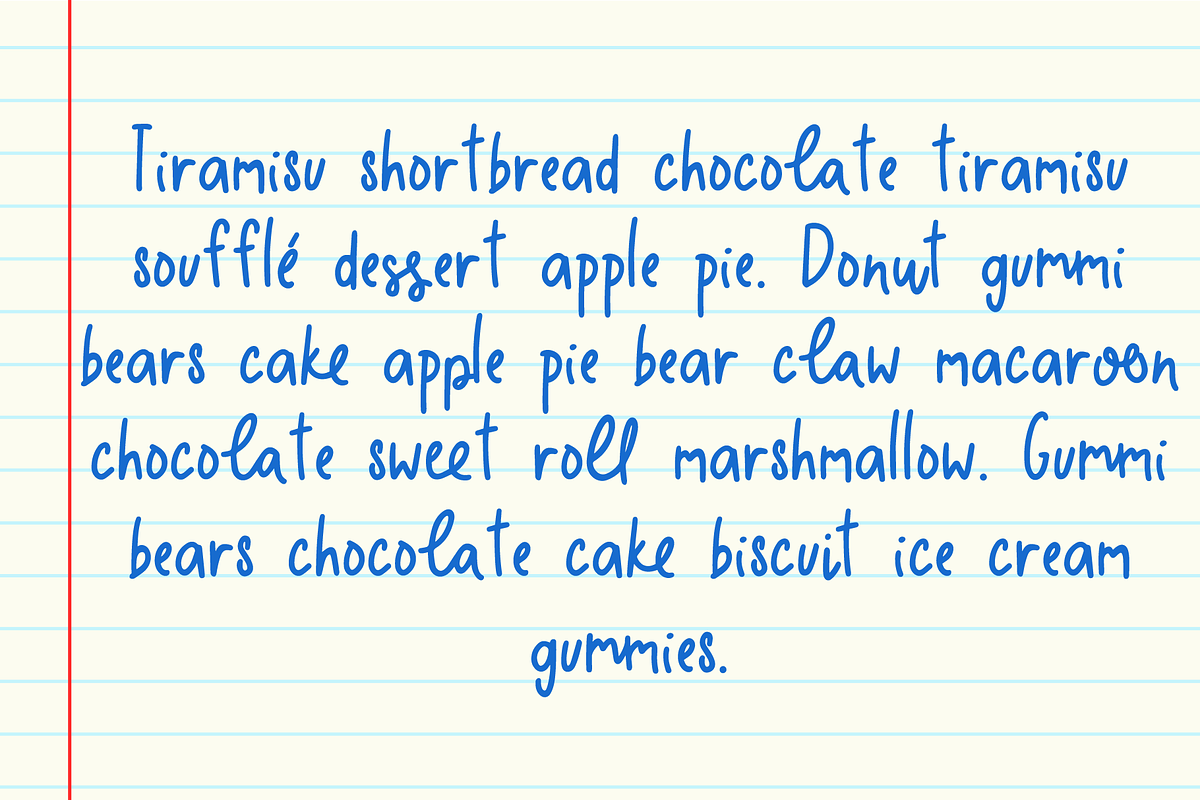 Tiramisu shortbread chocolate tiramisu
soufflé dessert apple pie. Donut gummi
bears cake apple pie bear claw macaroon
chocolate sweet roll marshmallow. Gummi
bears chocolate cake biscuit ice cream
gummies.